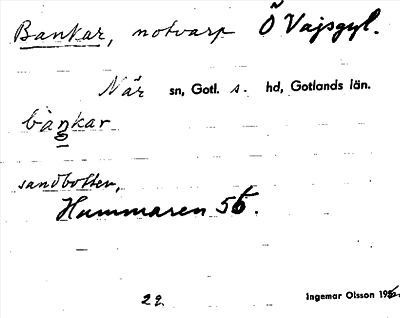 Bankar, notvarp Ö Vajsgyl.
När sn, Gotl. s. hd, Gotlands län.
bànkar
sandbotten,
Hammaren 5b.
22
Ingemar Olsson